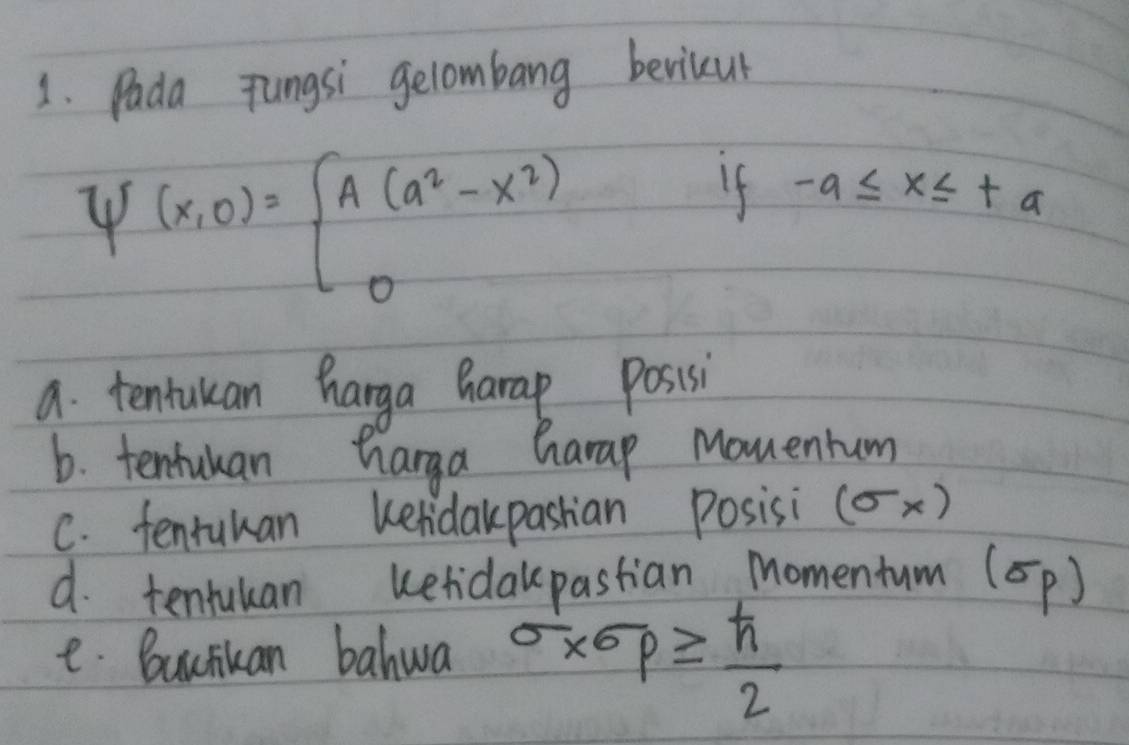 1. Pada Fungsi gelombang berikut
Ψ (x,0) = { A (a² - x²) if -a ≤ x ≤ + a
0
a. tentukan harga harap posisi
b. tentukan harga harap Momentum
c. tentukan ketidakpastian posisi (σx)
d. tentukan ketidakpastian Momentum (σp)
e. Buktikan bahwa σx σp ≥ ħ/2